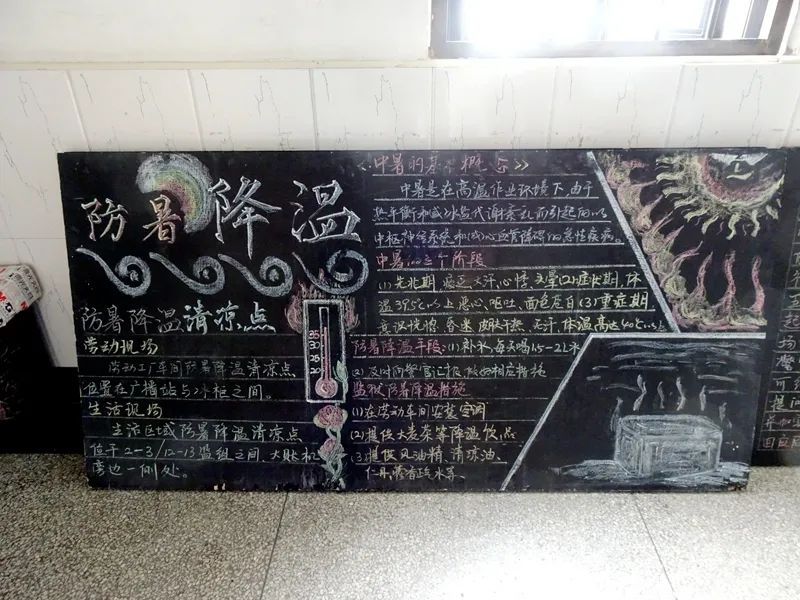 防暑降温
防暑降温清凉点
劳动现场
劳动工厂车间防暑降温清凉点
位置在广播站与冰柜之间。
生活现场
生活区域防暑降温清凉点
位于2-3/12-13监组之间大账机
旁边一侧处。
35
30
25
20
《中暑的基本概念》
中暑是在高温作业环境下,由于
热平衡和或水盐代谢紊乱而引起的以
中枢神经系统和(或)心血管障碍的急性疾病。
中暑的三个阶段
(1)先兆期,疲乏、大汗、心悸、头晕(2)症状期,体
温39.5℃以上恶心、呕吐、面色苍白(3)重症期
意识恍惚、昏迷、皮肤干热、无汗、体温高达40℃以上
防暑降温手段:(1)补水,每天喝1.5-2L水
(2)及时向警官汇报,做好相应措施
监狱防暑降温措施
(1)在劳动车间安装空调
(2)提供大麦茶等降温饮品
(3)提供风油精、清凉油、
仁丹、藿香正气水等、